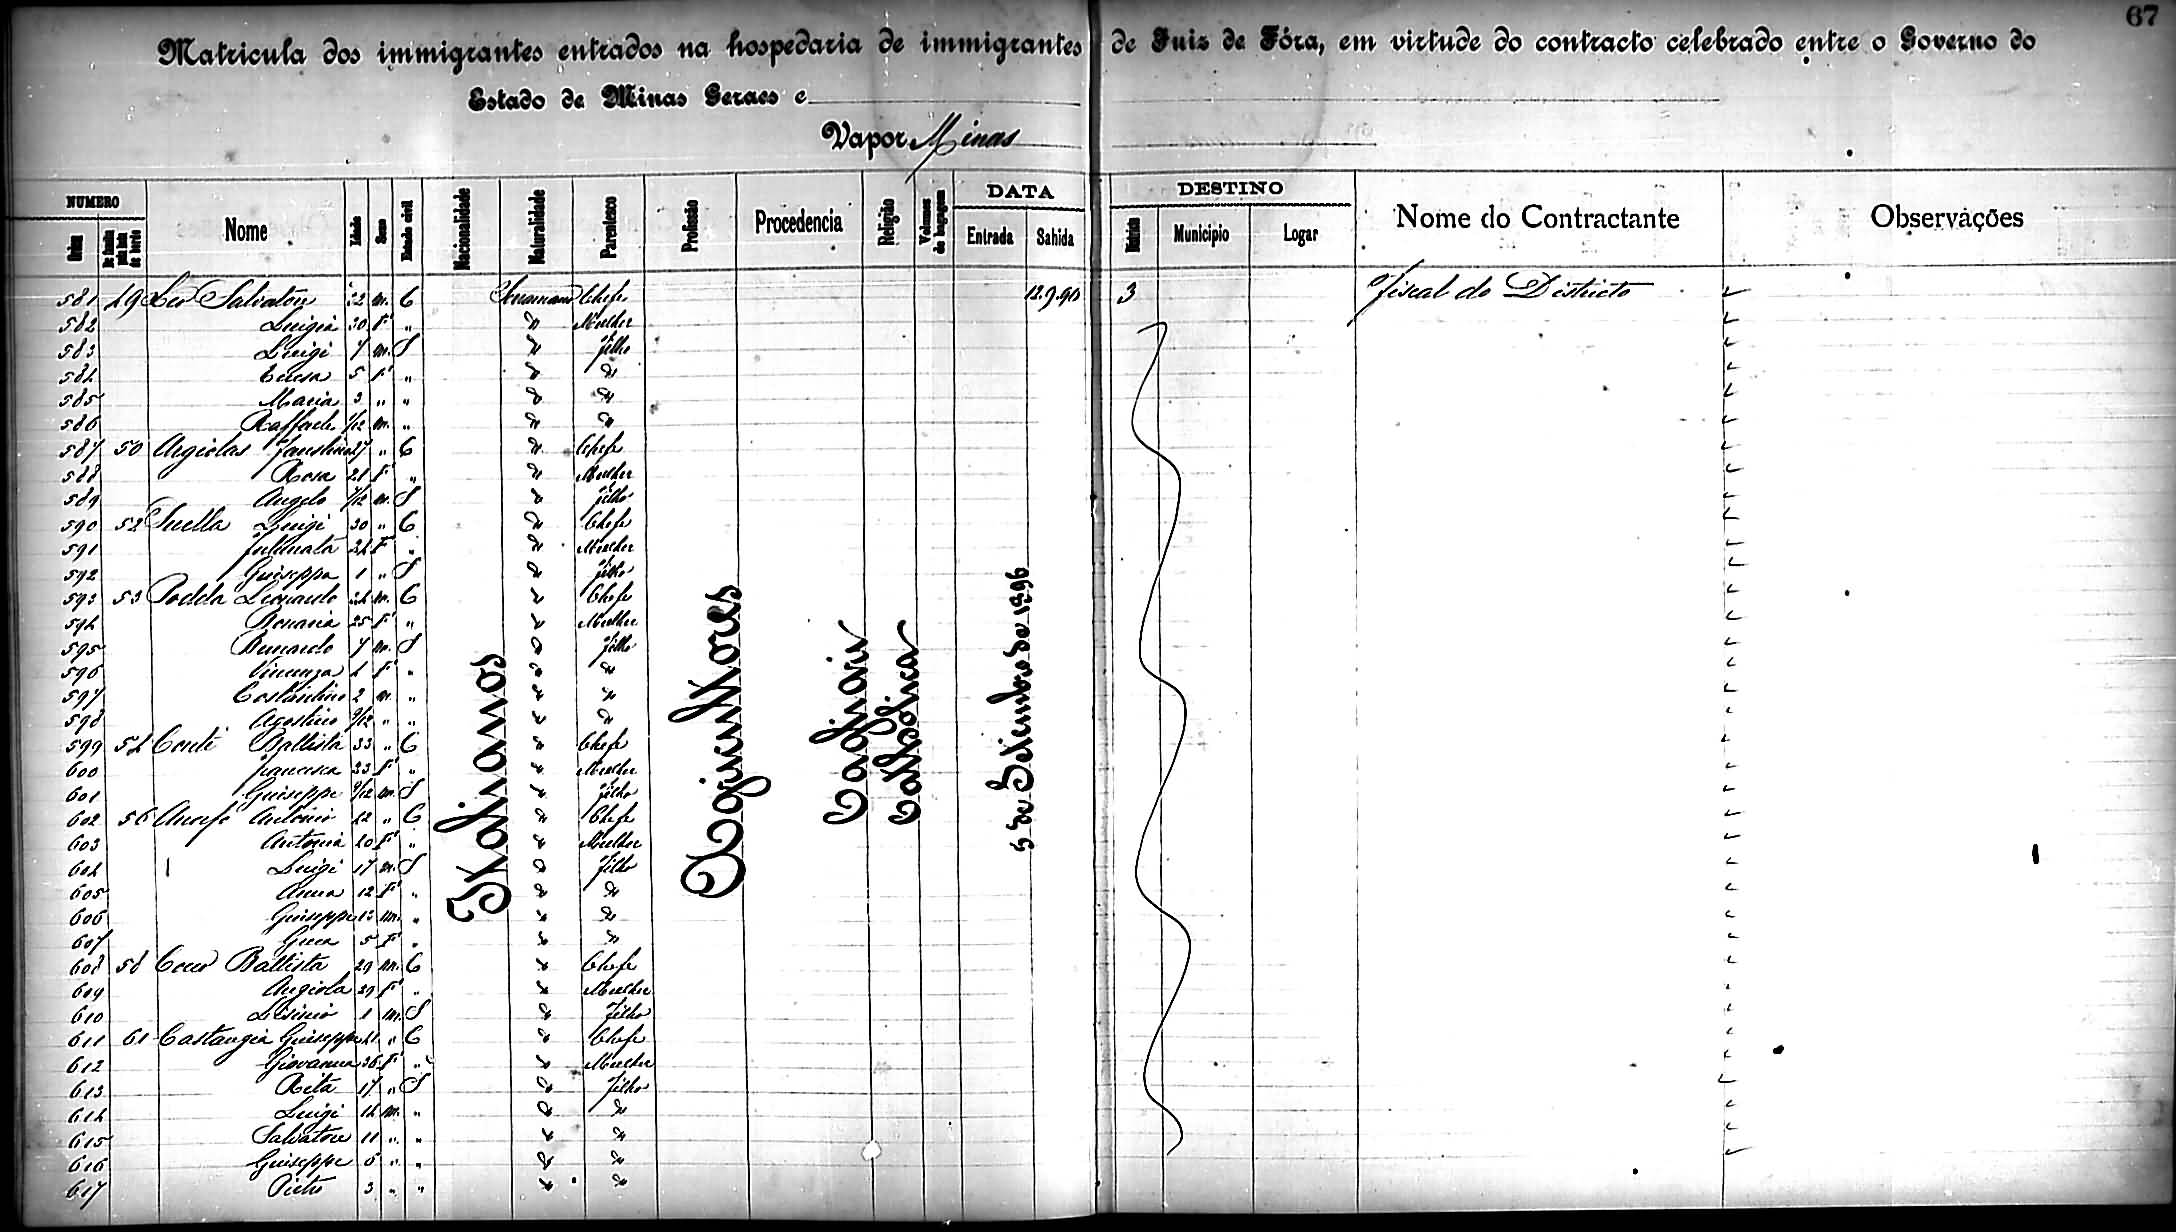 67
Matricula dos immigrantes entrados na hospedaria de immigrantes de Juiz de Fóra, em virtude do contracto celebrado entre o Governo do
Estado de Minas Geraes e
Vapor Minas
NUMERO DATA DESTINO
Ordem De familia pela lista de bordo Nome Idade Sexo Estado civil Nacionalidade Naturalidade Parentesco Profissão Procedencia Religião Volumes de bagagem Entrada Sahida Districto Municipio Logar Nome do Contractante Observações
581 49 Leo Salvatore 32 m. C Chefe 12.9.96 3 Fiscal do Districto
582 Luigia 30 F " " Mulher
583 Luigi 7 m. S " filho
584 Teresa 5 F " " "
585 Maria 3 " " " "
586 Raffaele /12 m. " " "
587 50 Argiolas Faustino 27 " C " Chefe
588 Rosa 21 F " " Mulher
589 Angelo /12 m. S " filho
590 52 Luigi 30 " C " Chefe
591 Fortunata 24 F " " Mulher
592 Giuseppa 1 " S " filho
593 53 Podda Leonardo 34 m. C " Chefe
594 25 F " " Mulher
595 Bernardo 7 m. S " filho
596 Vincenza 4 F " " "
597 Costantino 2 m. " " "
598 Agostino 9/12 " " " "
599 54 Conti Battista 33 " C " Chefe
600 Francisca 23 F " " Mulher
601 Giuseppe 9/12 m. S " filho
602 56 Antonio 42 " C " Chefe
603 Antonia 40 F " " Mulher
604 Luigi 17 m. S " filho
605 Anna 12 F " " "
606 Giuseppe 12 m. " " "
607 5 F " " "
608 58 Cocco Battista 29 m. C " Chefe
609 Angiola 29 F " " Mulher
610 1 m. S " Filho
611 61 Castangia Giuseppe 41 " C " Chefe
612 Giovanna 36 F " " Mulher
613 Rita 17 " S " filho
614 Luigi 14 m. " " "
615 Salvatore 11 " " " "
616 Giuseppe 6 " " " "
617 Pietro 3 " " " "
Italianos
Agricultores
Cagliari
Catholica
5 de Setembro de 1896